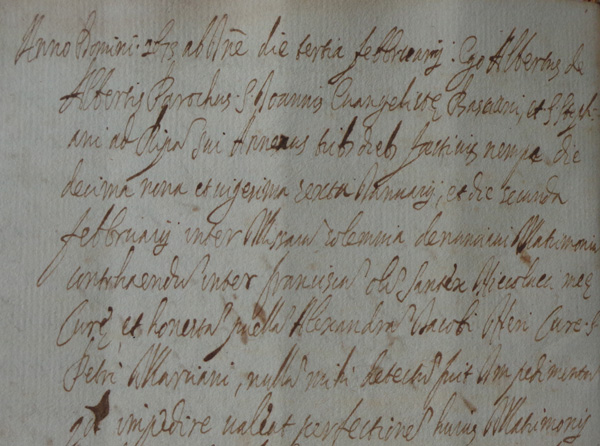 Anno Domini 1673 ab Inne die tertia februarij. Ego Albertus de
Albertis Parochus S. Joannis Evangelistę et S. Steph-
ani ad Ripa sui Annexus trib dieb festivis nempe die
decima nona et vigesima sexta Januarij, et die secunda
februarij inter Missaru solemnia denunciavi Matrimoniu
contrahendu inter franciscu Sanctę meę
Curę, et honesta puella Alexandra Jacobi Curę S.
Petri, nullu mihi detectu fuit Impedimentu
impedire valeat perfectione huius Matrimonij